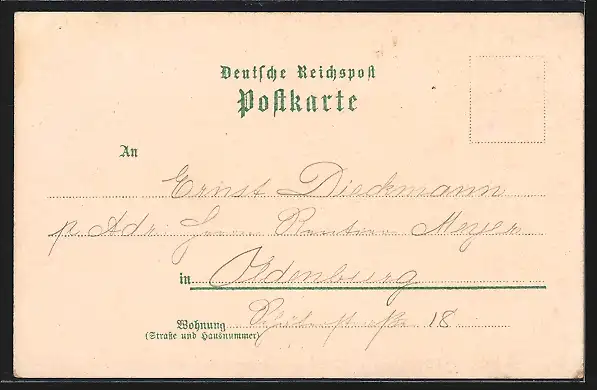 Deutsche Reichspost
Postkarte
An
Ernst Dieckmann
p. Adr. Meyer
in Oldenburg
Wohnung 18
(Straße und Hausnummer)